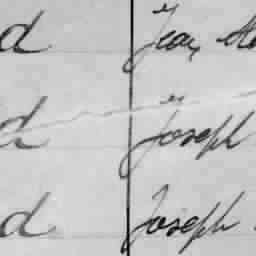 d Jean
d Joseph
d Joseph